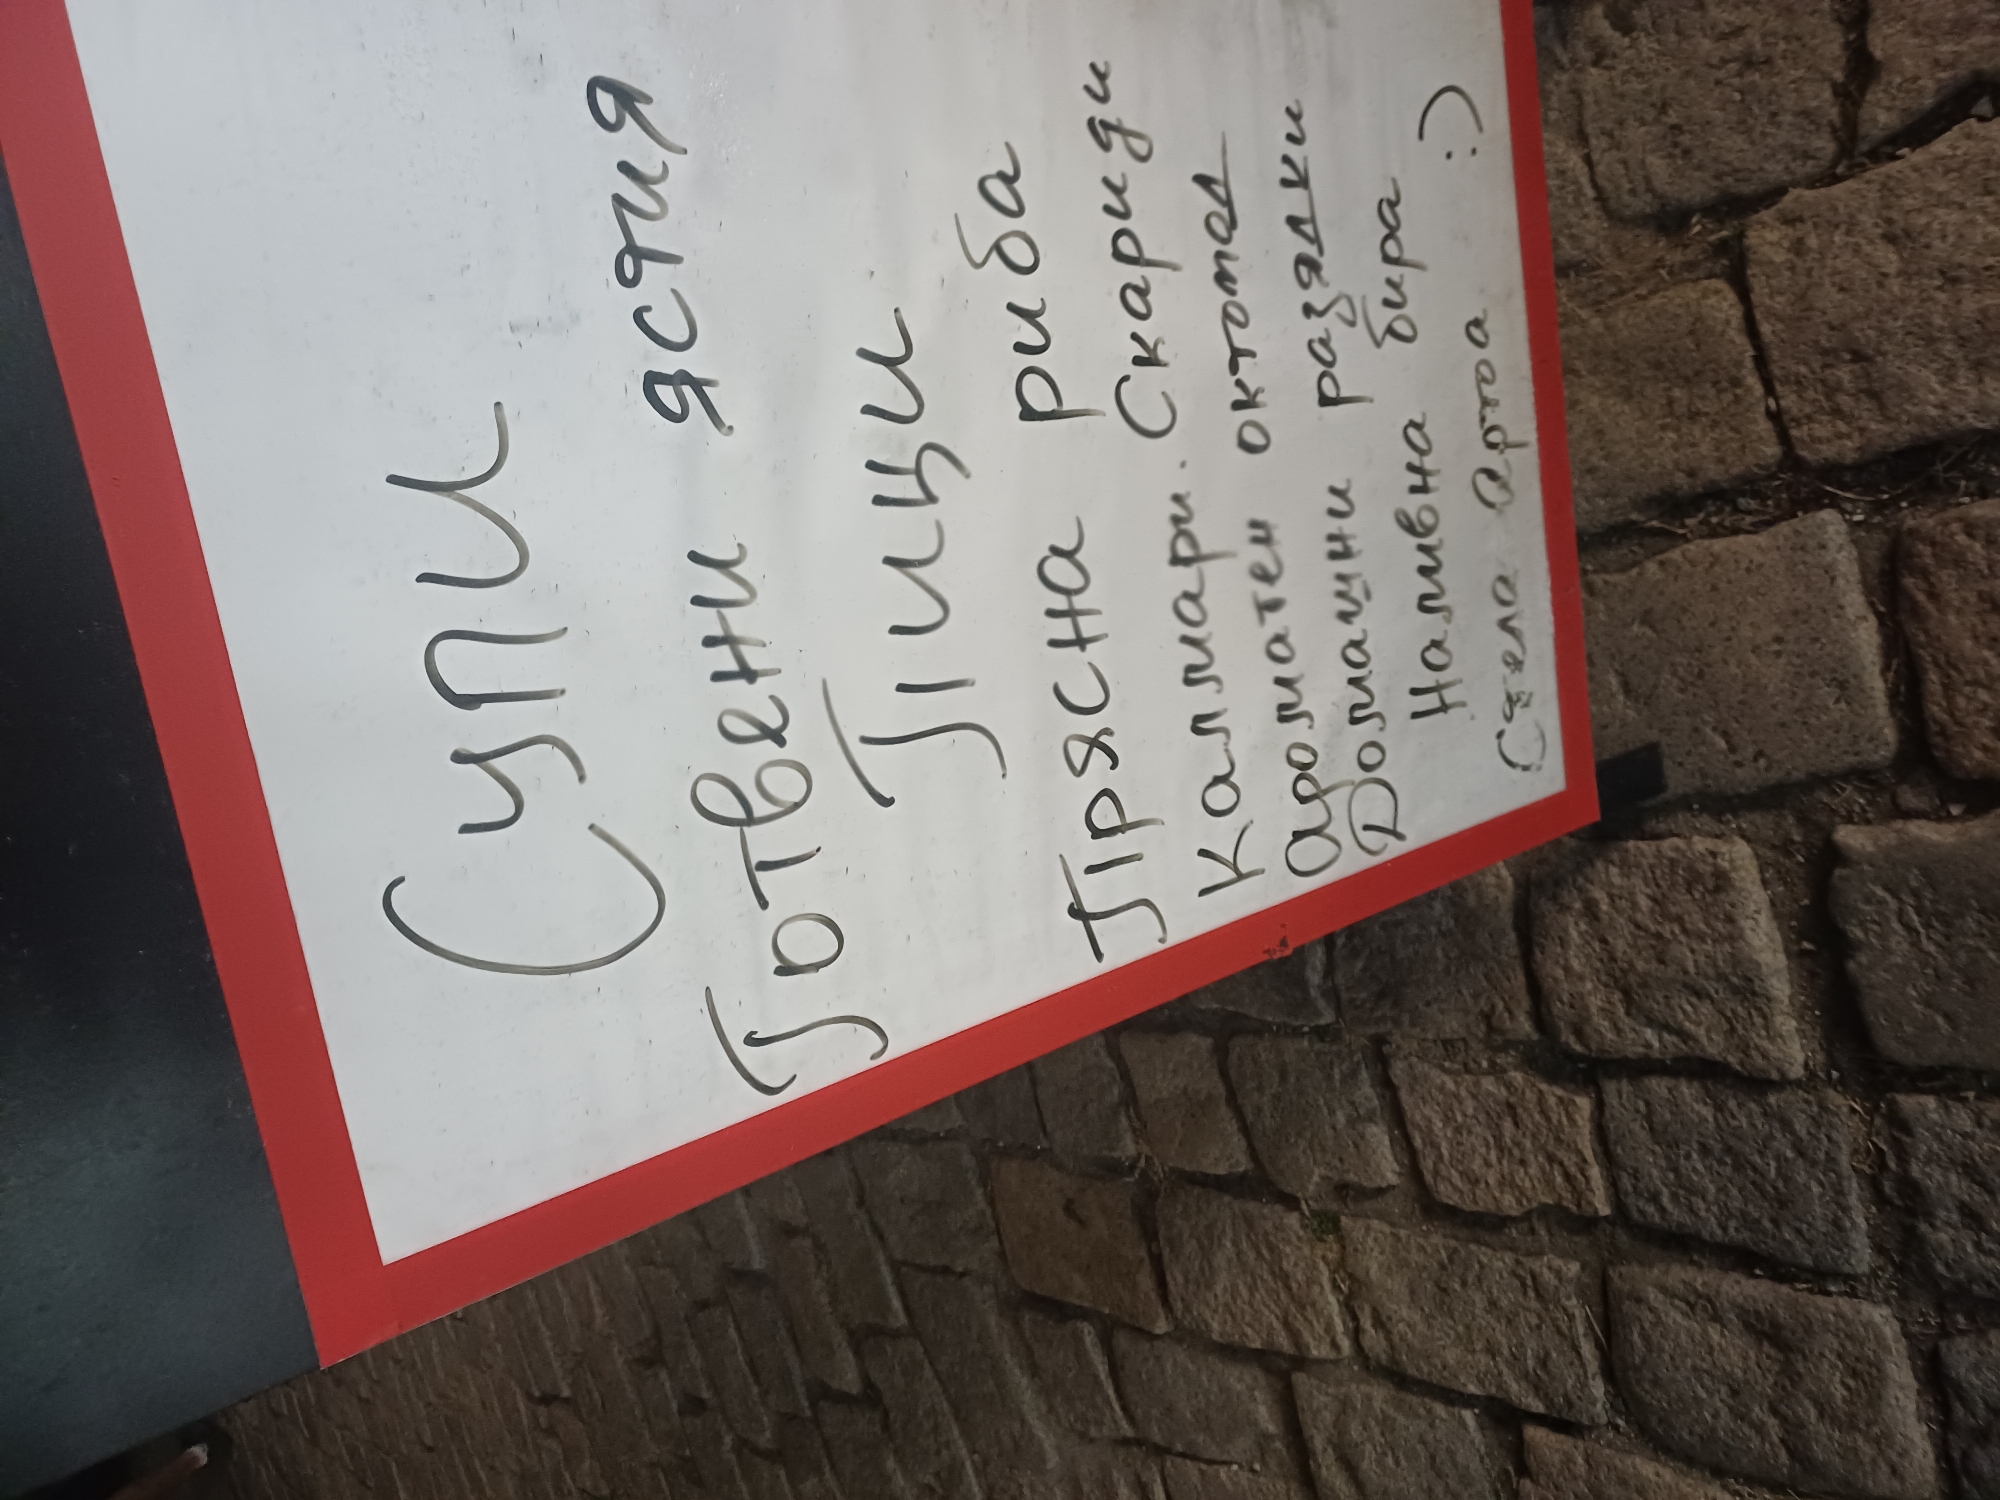 Супи
Готвени ястия
Пици
Прясна риба
Калмари. Скариди
Ароматен октопод
Домашни разядки
Наливна бира
Стела Артоа :)